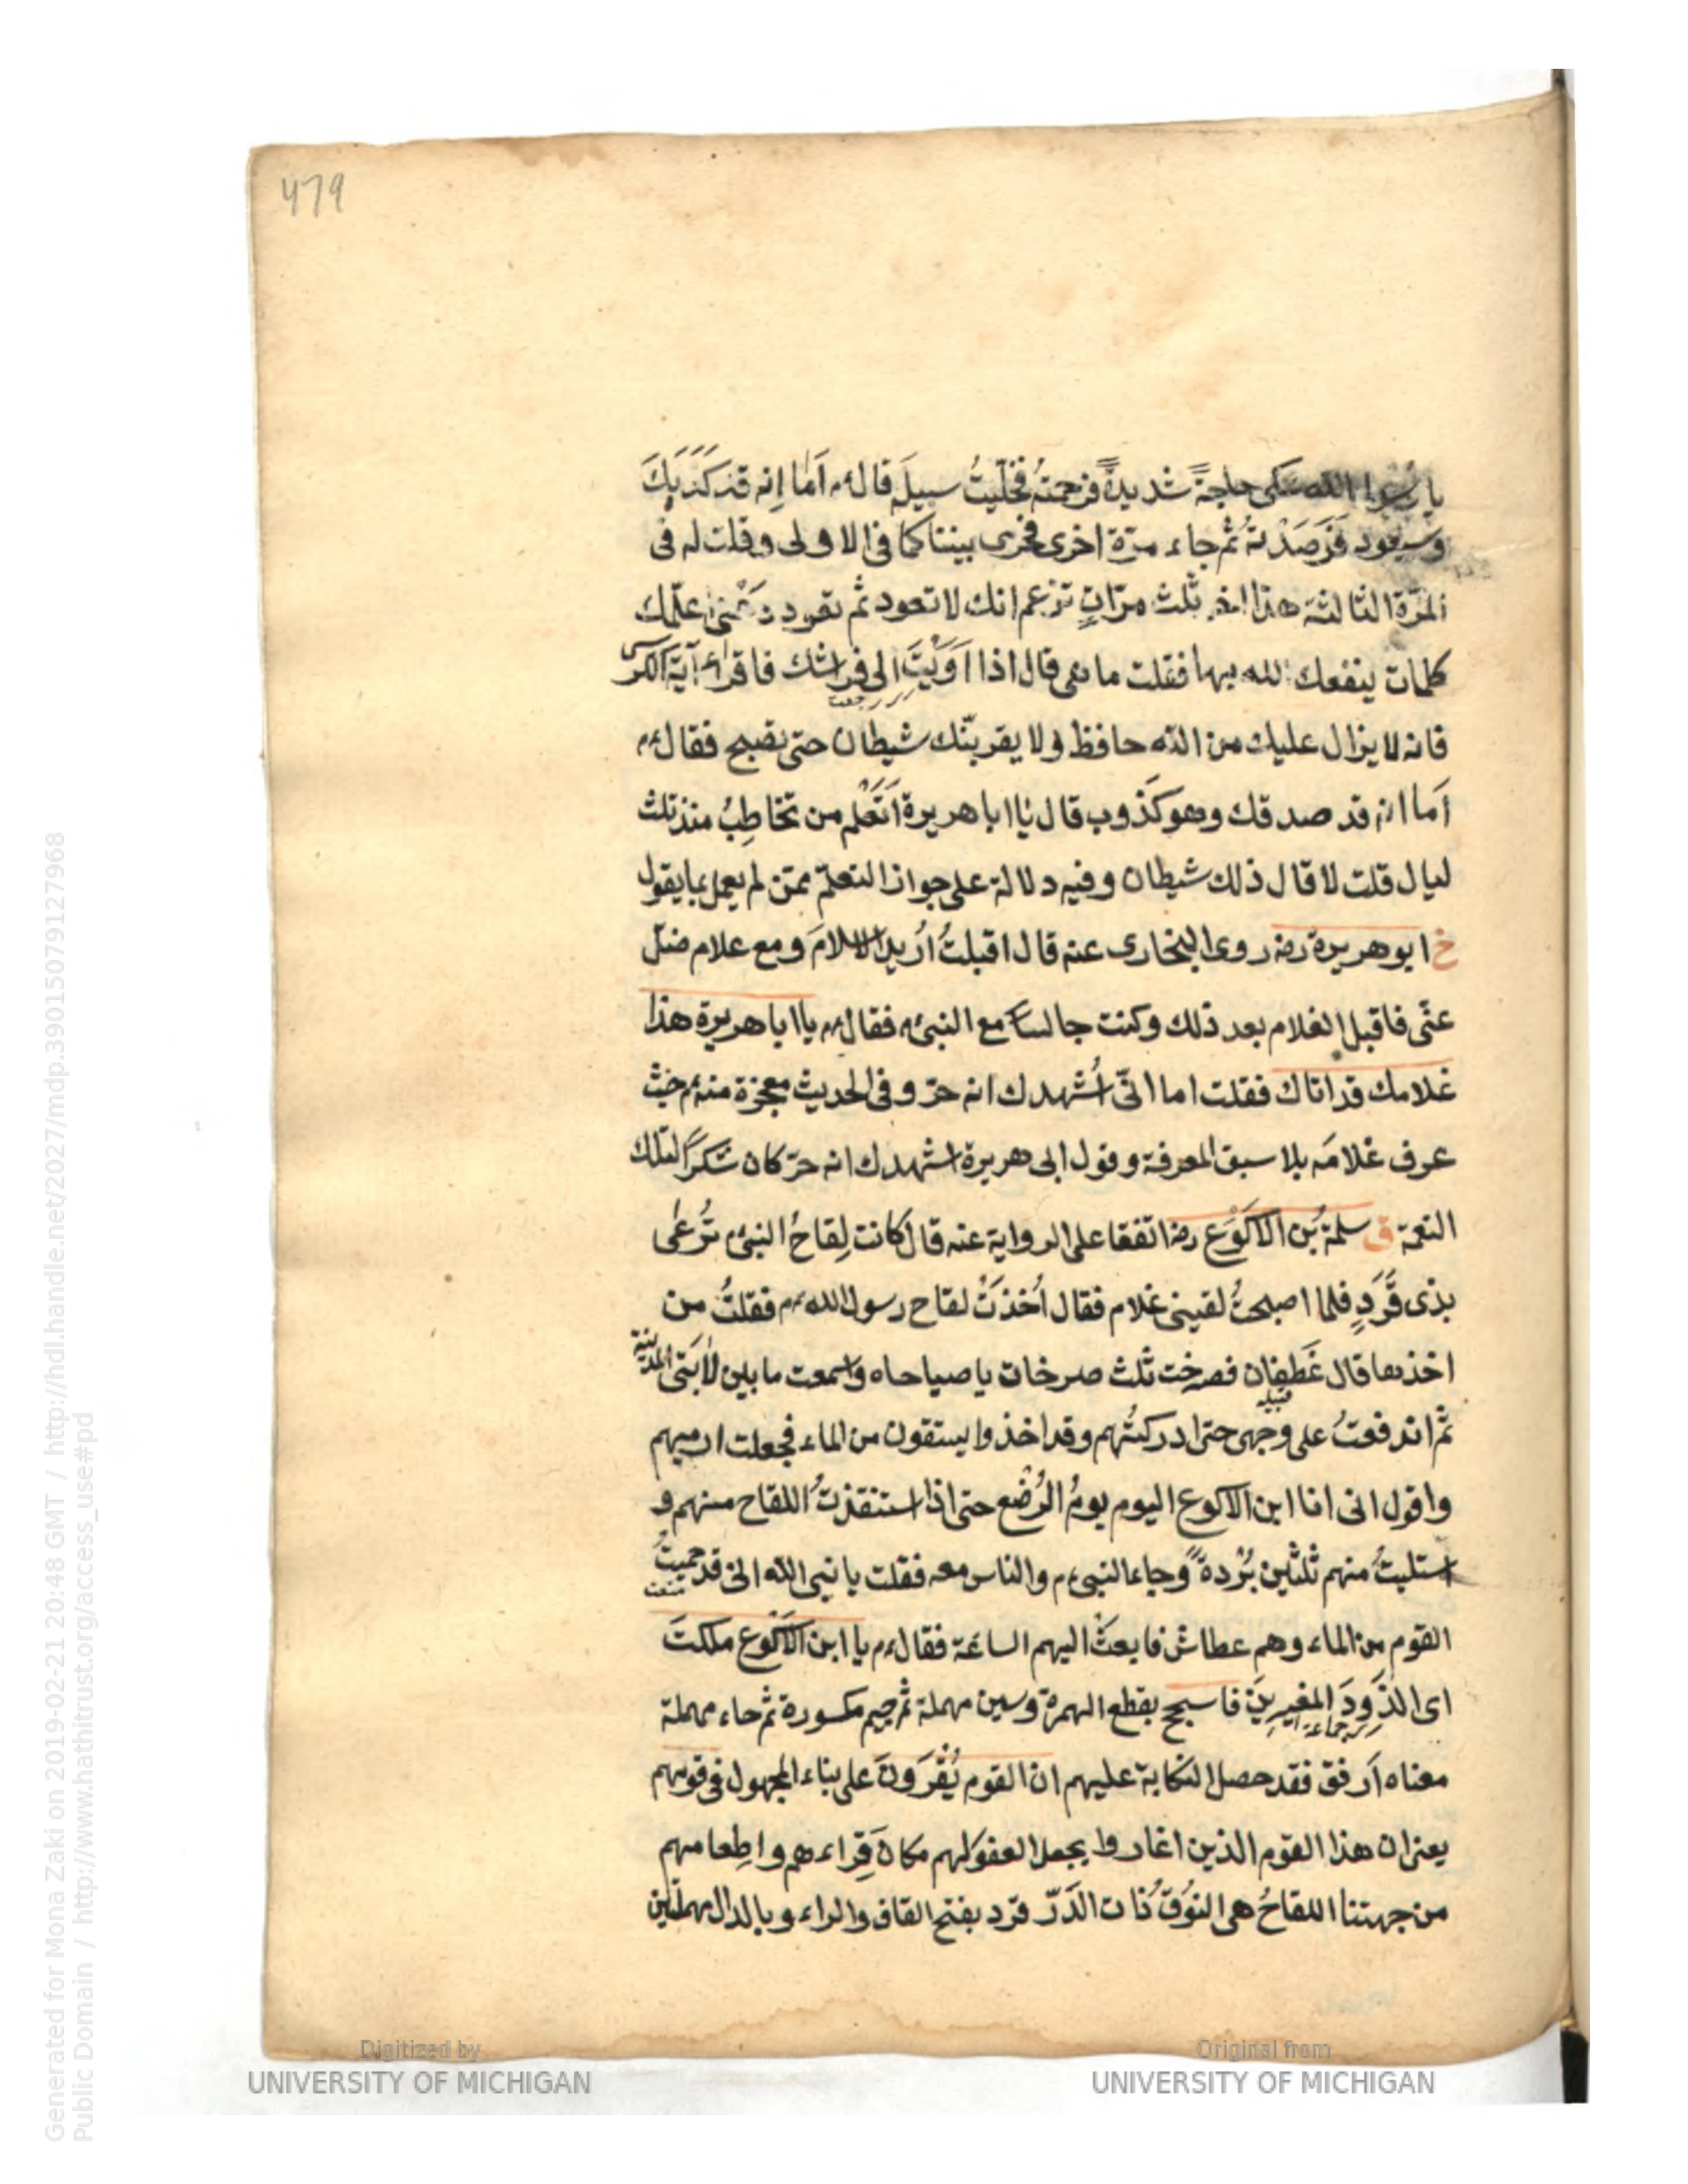 479
يا رسول الله شكى حاجةً شديدةً فرحمتُه فخلّيتُ سبيلَ قال ءم اَما اِنه قد كَذَبَكَ
وسيعود فَرَصَدْته ثُم جاء مرّة اخرى فجرى بيننا كما فى الاولى وقلت له فى
المرّة الثالثة هذا اخر ثلث مرّاتٍ تزعم انك لا تعود ثم تعود دَعْنى اعلّمك
كلمات ينفعك الله بها فقلت ما هى قال اذا اَوَيْتَ الى فراشك فاقرأ آية الكرسى
رجعت
فانه لا يزال عليك من الله حافظ ولا يقربنّك شيطان حتى تصبح فقال ءم
اَما انه قد صدقك وهو كَذوب قال يا ابا هريرة اَتَعْلَم من تخاطِبُ منذ ثلث
ليال قلت لا قال ذلك شيطان وفيه دلالة على جواز التعلّم ممّن لم يعمل بما يقول
خ ابو هريرة رضه روى البخارى عنه قال اقبلتُ اُريد الاسلامَ ومع غلام ضلّ
عنّى فاقبل الغلام بعد ذلك وكنت جالسا مع النبى ءم فقال ءم يا ابا هريرة هذا
غلامك قد اتاك فقلت اما انّى اُشهدك انه حرّ وفى الحديث معجزة منه ءم حيث
عرف غلامَه بلا سبق المعرفة وقول ابى هريرة اشهدك انه حرّ كان شكرًا لتلك
النعمة ق سلمة بُن الاَكْوَع رضه اتفقا على الرواية عنه قال كانت لِقاحُ النبى ءم تُرعٰى
بذى قَرَدٍ فلما اصبحتُ لقينى غلام فقال اُخذَتْ لقاح رسول الله ءم فقلتُ من
اخذها قال غَطفان فصرخت ثلث صرخات يا صباحاه واسمعت ما بين لاَبَتَى المدينة
قبيله
ثم اندفعتُ على وجهى حتى ادركتُهم وقد اخذوا يستقون من الماء فجعلت ارميهم
واقول انى انا ابن الاكوع اليوم يومُ الرُضّع حتى اذا استنقذتُ اللقاح منهم و
استلبتُ منهم ثلثين بُرْدةً وجاء النبى ءم والناس معه فقلت يا نبى الله انى قد حميتُ
منعت
القوم من الماء وهم عطاش فابعثْ اليهم الساعة فقال ءم يا ابن الاَكْوع ملكتَ
اى الذَودَ المغيرِينَ فاسجح بقطع الهمزة وسين مهملة ثم جيم مكسورة ثم حاء مهملة
جماعة
معناه اَرفق فقد حصل النكاية عليهم ان القوم يُقْرَونَ على بناء المجهول فى قومهم
يعنى ان هذا القوم الذين اغاروا يجعل العفو لهم مكانَ قِراءهم واطِعامهم
من جهتنا اللقاحُ هى النُوقُ ذات الدَرّ قرد بفتح القاف والراء وبالدال مهملتين
Generated for Mona Zaki on 2019-02-21 20:48 GMT / http://hdl.handle.net/2027/mdp.39015079127968
Public Domain / http://www.hathitrust.org/access_use#pd
Digitized by
UNIVERSITY OF MICHIGAN
Original from
UNIVERSITY OF MICHIGAN